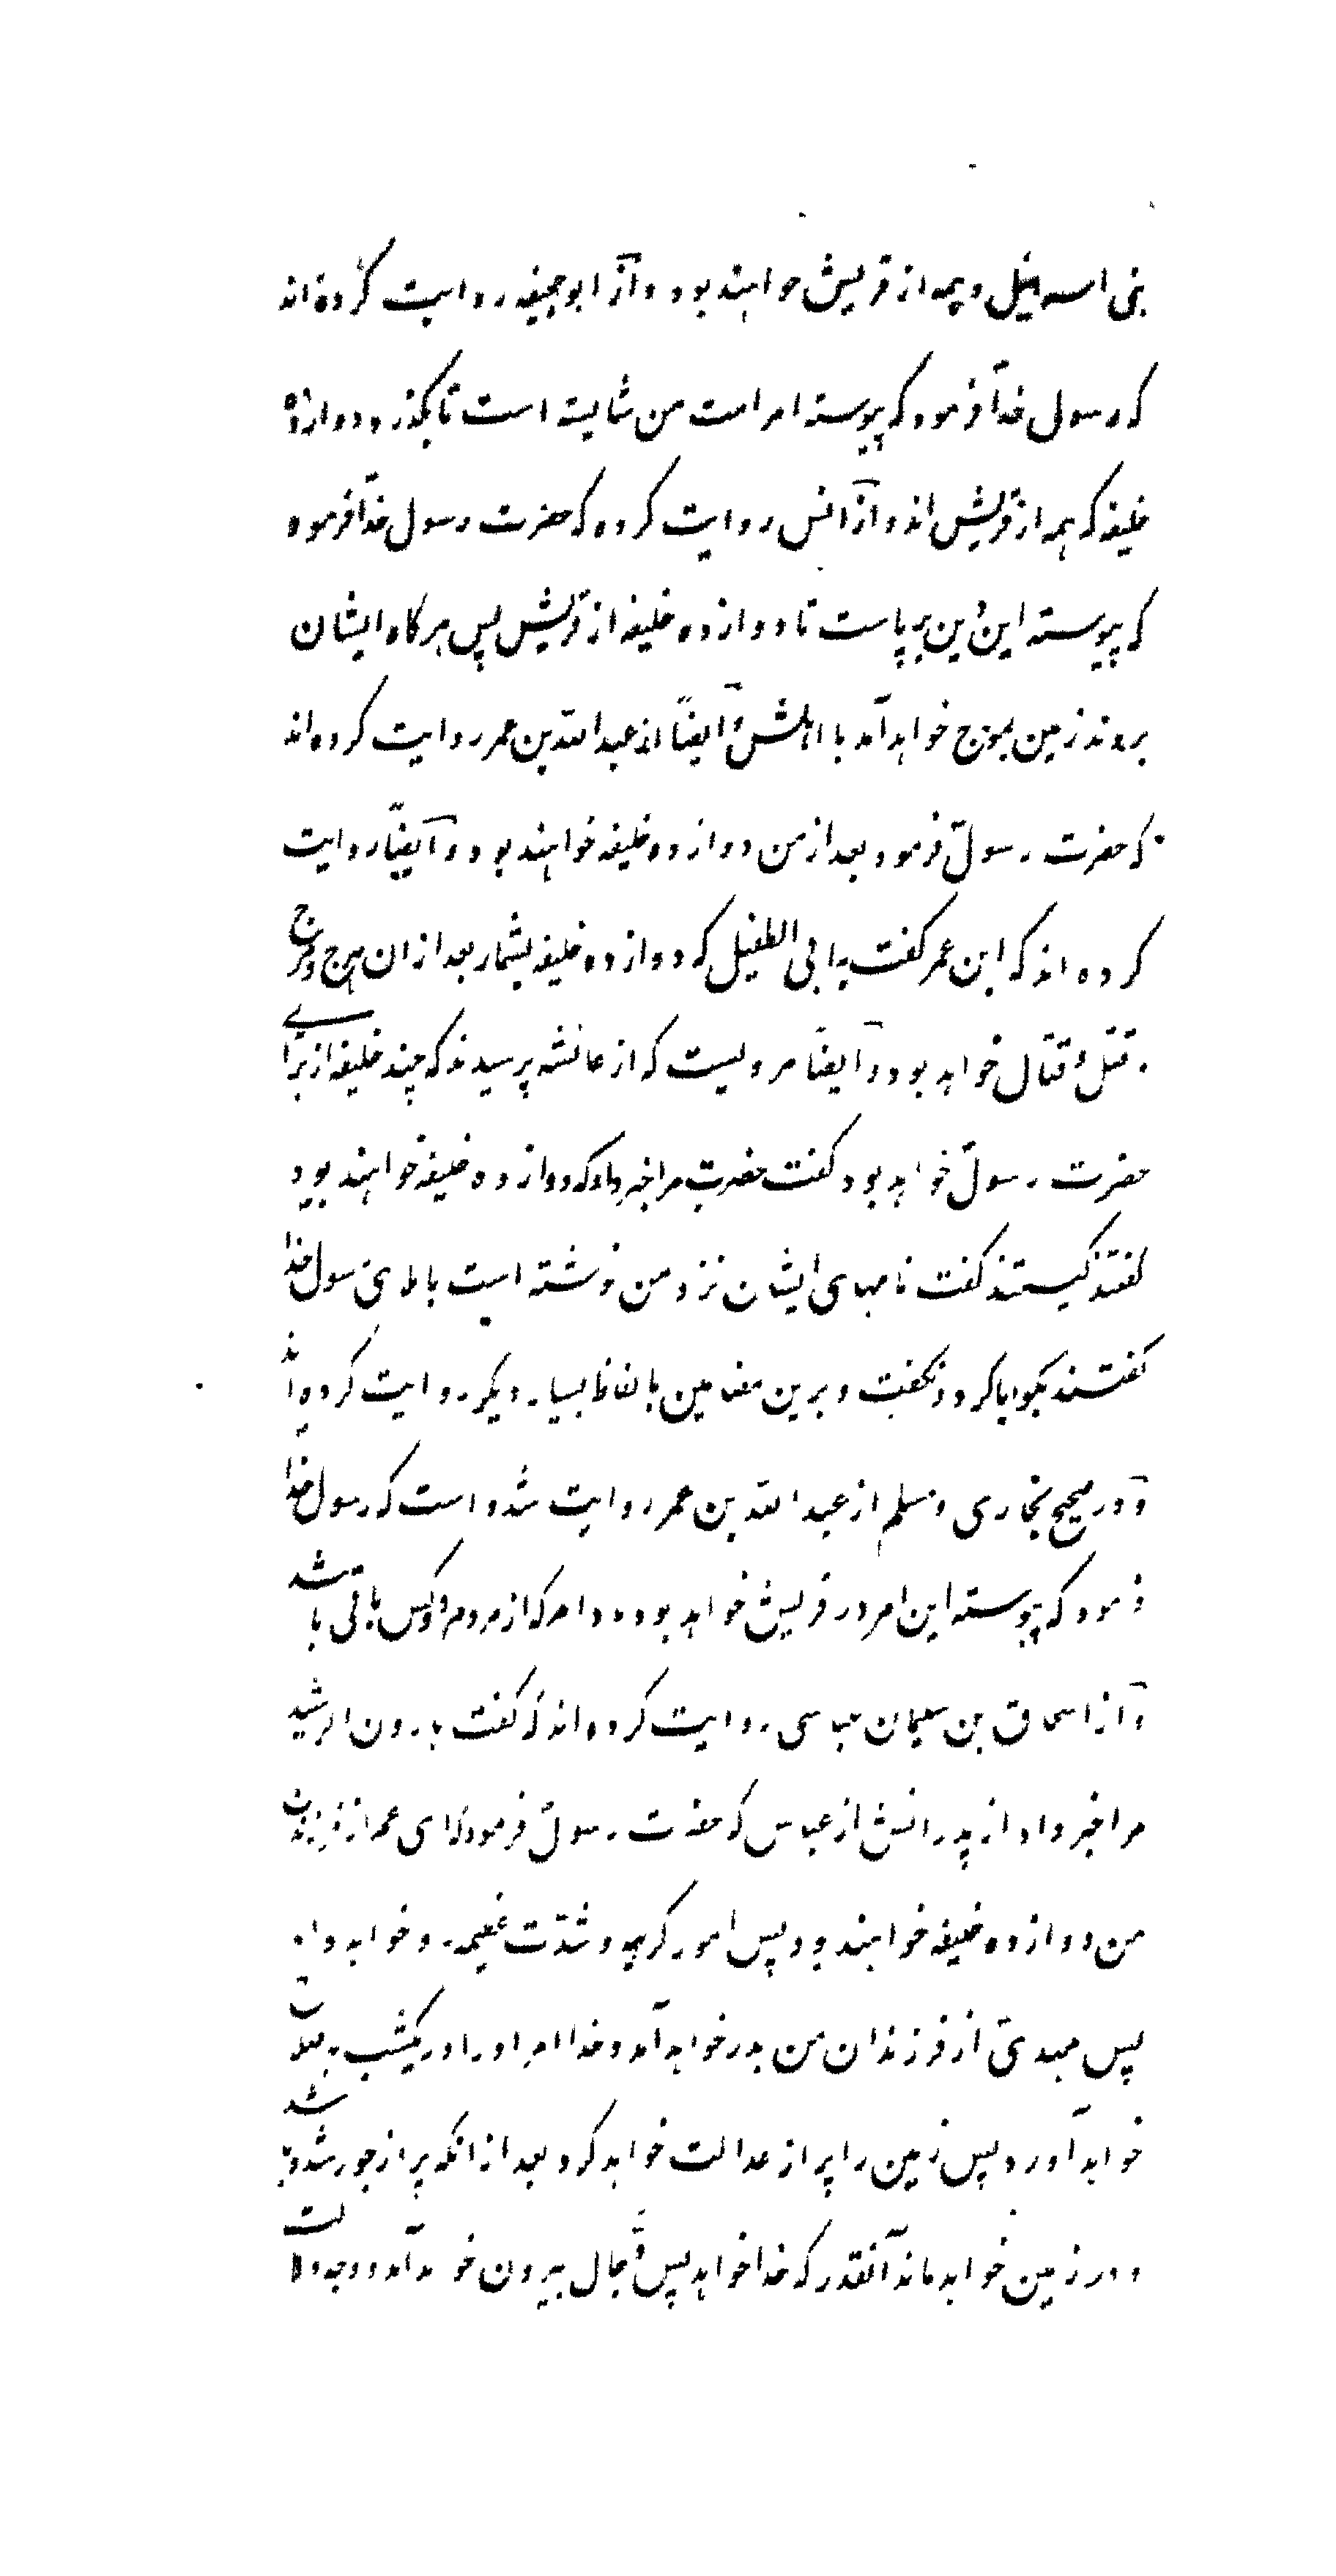 بنی اسرائیل و همه از قریش خواهند بود و از ابو جحیفه روایت کرده اند
که رسول خدا فرمود که پیوسته امر امت من شایسته است تا بگذرد دوازده
خلیفه که همه از قریش اند و از انس روایت کرده که حضرت رسول خدا فرموده
که پیوسته این دین برپاست تا دوازده خلیفه از قریش پس هرگاه ایشان
بروند زمین بموج خواهد آمد با اهلش و ایضاً از عبد الله بن عمر روایت کرده اند
که حضرت رسول فرمود بعد از من دوازده خلیفه خواهند بود و ایضاً روایت
کرده اند که ابن عمر گفت بابی الطفیل که دوازده خلیفه بشمار بعد از ان هرج و مرج
و قتل و قتال خواهد بود و ایضاً مرویست که از عائشه پرسیدند که چند خلیفه از برای
حضرت رسول خواهد بود گفت حضرت مرا خبر داد که دوازده خلیفه خواهند بود
گفتند کیستند گفت نامهای ایشان نزد من نوشته است باملای رسول خدا
گفتند بگو ابا کرد و نگفت و برین مضامین بالفاظ بسیار دیگر روایت کرده اند
و در صحیح بخاری و مسلم از عبد الله بن عمر روایت شده است که رسول خدا
فرمود که پیوسته این امر در قریش خواهد بود مادام که از مردم دو کس باقی باشد
و از اسحاق بن سلیمان عباسی روایت کرده اند که گفت هارون الرشید
مرا خبر داد از پدرانش از عباس که حضرت رسول فرمود که ای عم از فرزندان
من دوازده خلیفه خواهند بود پس امور کریهه و شدّت عظیمه رو خواهد داد
پس مهدی از فرزندان من بدر خواهد آمد و خدا امر او را در یکشب بصلاح
خواهد آورد پس زمین را پر از عدالت خواهد کرد بعد از انکه پر از جور شده باشد
و در زمین خواهد ماند آنقدر که خدا خواهد پس دجال بیرون خواهد آمد